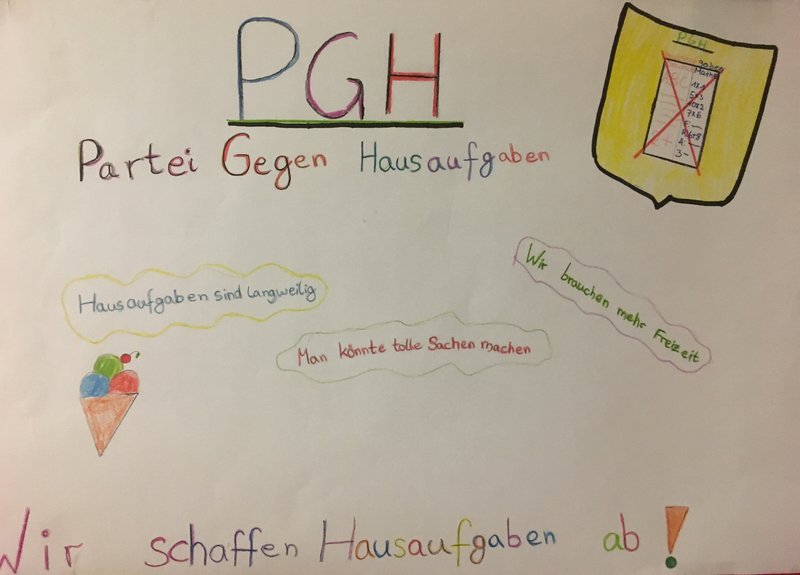 PGH
Partei Gegen Hausaufgaben
PGH
gaben
Mathe
1x1
5x3
10x2
7x6
Hausaufgaben sind langweilig
Wir brauchen mehr Freizeit
Man könnte tolle Sachen machen
Wir schaffen Hausaufgaben ab!